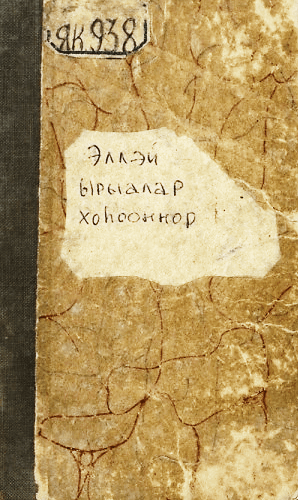 ЯК 938
Эллэй
ырыалар
хоһооннор